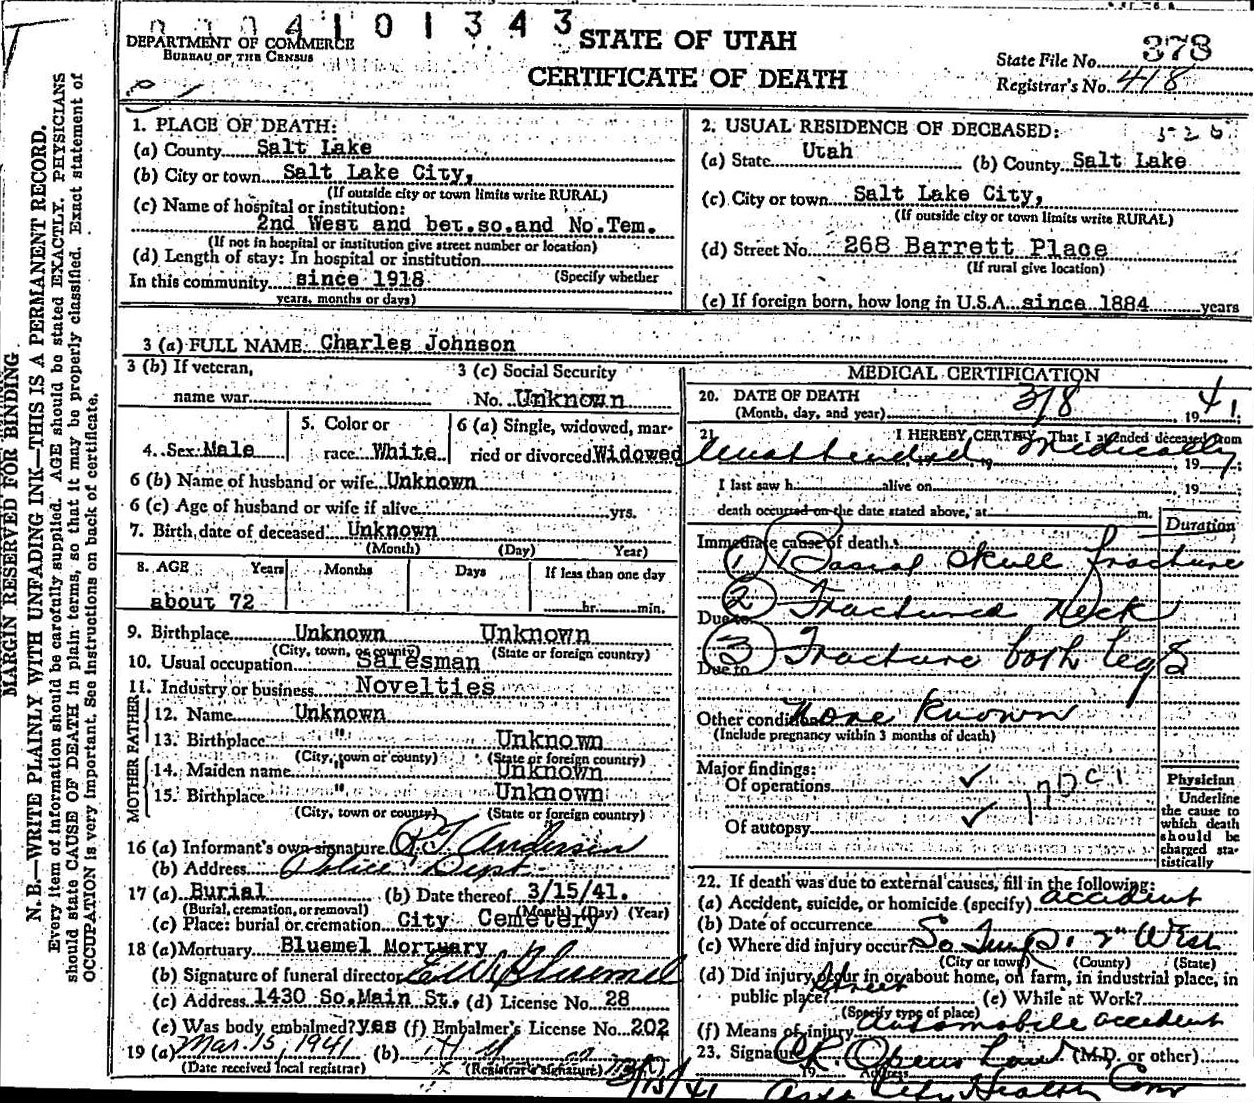 0304101343
DEPARTMENT OF COMMERCE
BUREAU OF THE CENSUS
STATE OF UTAH
CERTIFICATE OF DEATH
State File No. 373
Registrar's No. 418
MARGIN RESERVED FOR BINDING
N. B.—WRITE PLAINLY WITH UNFADING INK—THIS IS A PERMANENT RECORD.
Every item of information should be carefully supplied. AGE should be stated EXACTLY. PHYSICIANS
should state CAUSE OF DEATH in plain terms, so that it may be properly classified. Exact statement of
OCCUPATION is very important. See instructions on back of certificate.
1. PLACE OF DEATH:
(a) County Salt Lake
(b) City or town Salt Lake City,
(If outside city or town limits write RURAL)
(c) Name of hospital or institution:
2nd West and bet.so.and No.Tem.
(If not in hospital or institution give street number or location)
(d) Length of stay: In hospital or institution
In this community since 1918 (Specify whether
years, months or days)
2. USUAL RESIDENCE OF DECEASED:
(a) State Utah (b) County Salt Lake
(c) City or town Salt Lake City,
(If outside city or town limits write RURAL)
(d) Street No. 268 Barrett Place
(If rural give location)
(e) If foreign born, how long in U.S.A. since 1884 years
3 (a) FULL NAME Charles Johnson
3 (b) If veteran,
name war
3 (c) Social Security
No. Unknown
4. Sex Male
5. Color or
race White
6 (a) Single, widowed, mar-
ried or divorced Widowed
6 (b) Name of husband or wife Unknown
6 (c) Age of husband or wife if alive yrs.
7. Birth date of deceased Unknown
(Month) (Day) Year)
8. AGE Years Months Days If less than one day
about 72 hr. min.
9. Birthplace Unknown Unknown
(City, town, or county) (State or foreign country)
10. Usual occupation Salesman
11. Industry or business Novelties
FATHER
12. Name Unknown
13. Birthplace " Unknown
(City, town or county) (State or foreign country)
MOTHER
14. Maiden name " Unknown
15. Birthplace " Unknown
(City, town or county) (State or foreign country)
16 (a) Informant's own signature Anderson
(b) Address Police Dept.
17 (a) Burial (b) Date thereof 3/15/41.
(Burial, cremation, or removal) (Month) (Day) (Year)
(c) Place: burial or cremation City Cemetery
18 (a) Mortuary Bluemel Mortuary
(b) Signature of funeral director Bluemel
(c) Address 1430 So.Main St. (d) License No. 28
(e) Was body embalmed? yes (f) Embalmer's License No. 202
19 (a) Mar. 15, 1941 (b)
(Date received local registrar) (Registrar's signature)
MEDICAL CERTIFICATION
20. DATE OF DEATH
(Month, day, and year) 3/8 1941;
21. I HEREBY CERTIFY, That I attended deceased from
Unattended Medically 19
I last saw h alive on , 19
death occurred on the date stated above, at m.
Duration
Immediate cause of death
(1) Basial Skull fracture
Due to (2) Fractured Neck
Due to (3) Fracture both legs
Other conditions None Known
(Include pregnancy within 3 months of death)
Major findings:
Of operations ✓ 170C1
Of autopsy ✓
Physician
Underline
the cause to
which death
should be
charged sta-
tistically
22. If death was due to external causes, fill in the following:
(a) Accident, suicide, or homicide (specify) accident
(b) Date of occurrence
(c) Where did injury occur? So Temp. 2nd West
(City or town) (County) (State)
(d) Did injury occur in or about home, on farm, in industrial place, in
public place? Street (e) While at Work?
(Specify type of place)
(f) Means of injury Automobile accident
23. Signature (M.D. or other)
Address
3/15/41 Asst City Health Com